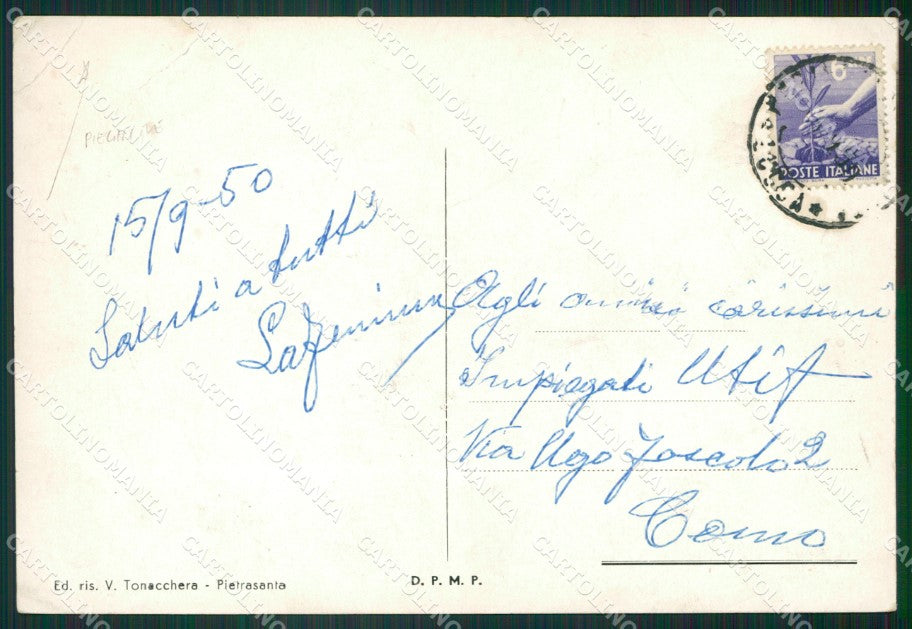 15/9-50
Saluti a tutti
Agli amici carissimi
Impiegati Utif
Via Ugo Foscolo 2
Como
6
POSTE ITALIANE
LUCCA
Ed. ris. V. Tonacchera - Pietrasanta
D. P. M. P.
CARTOLINOMANIA